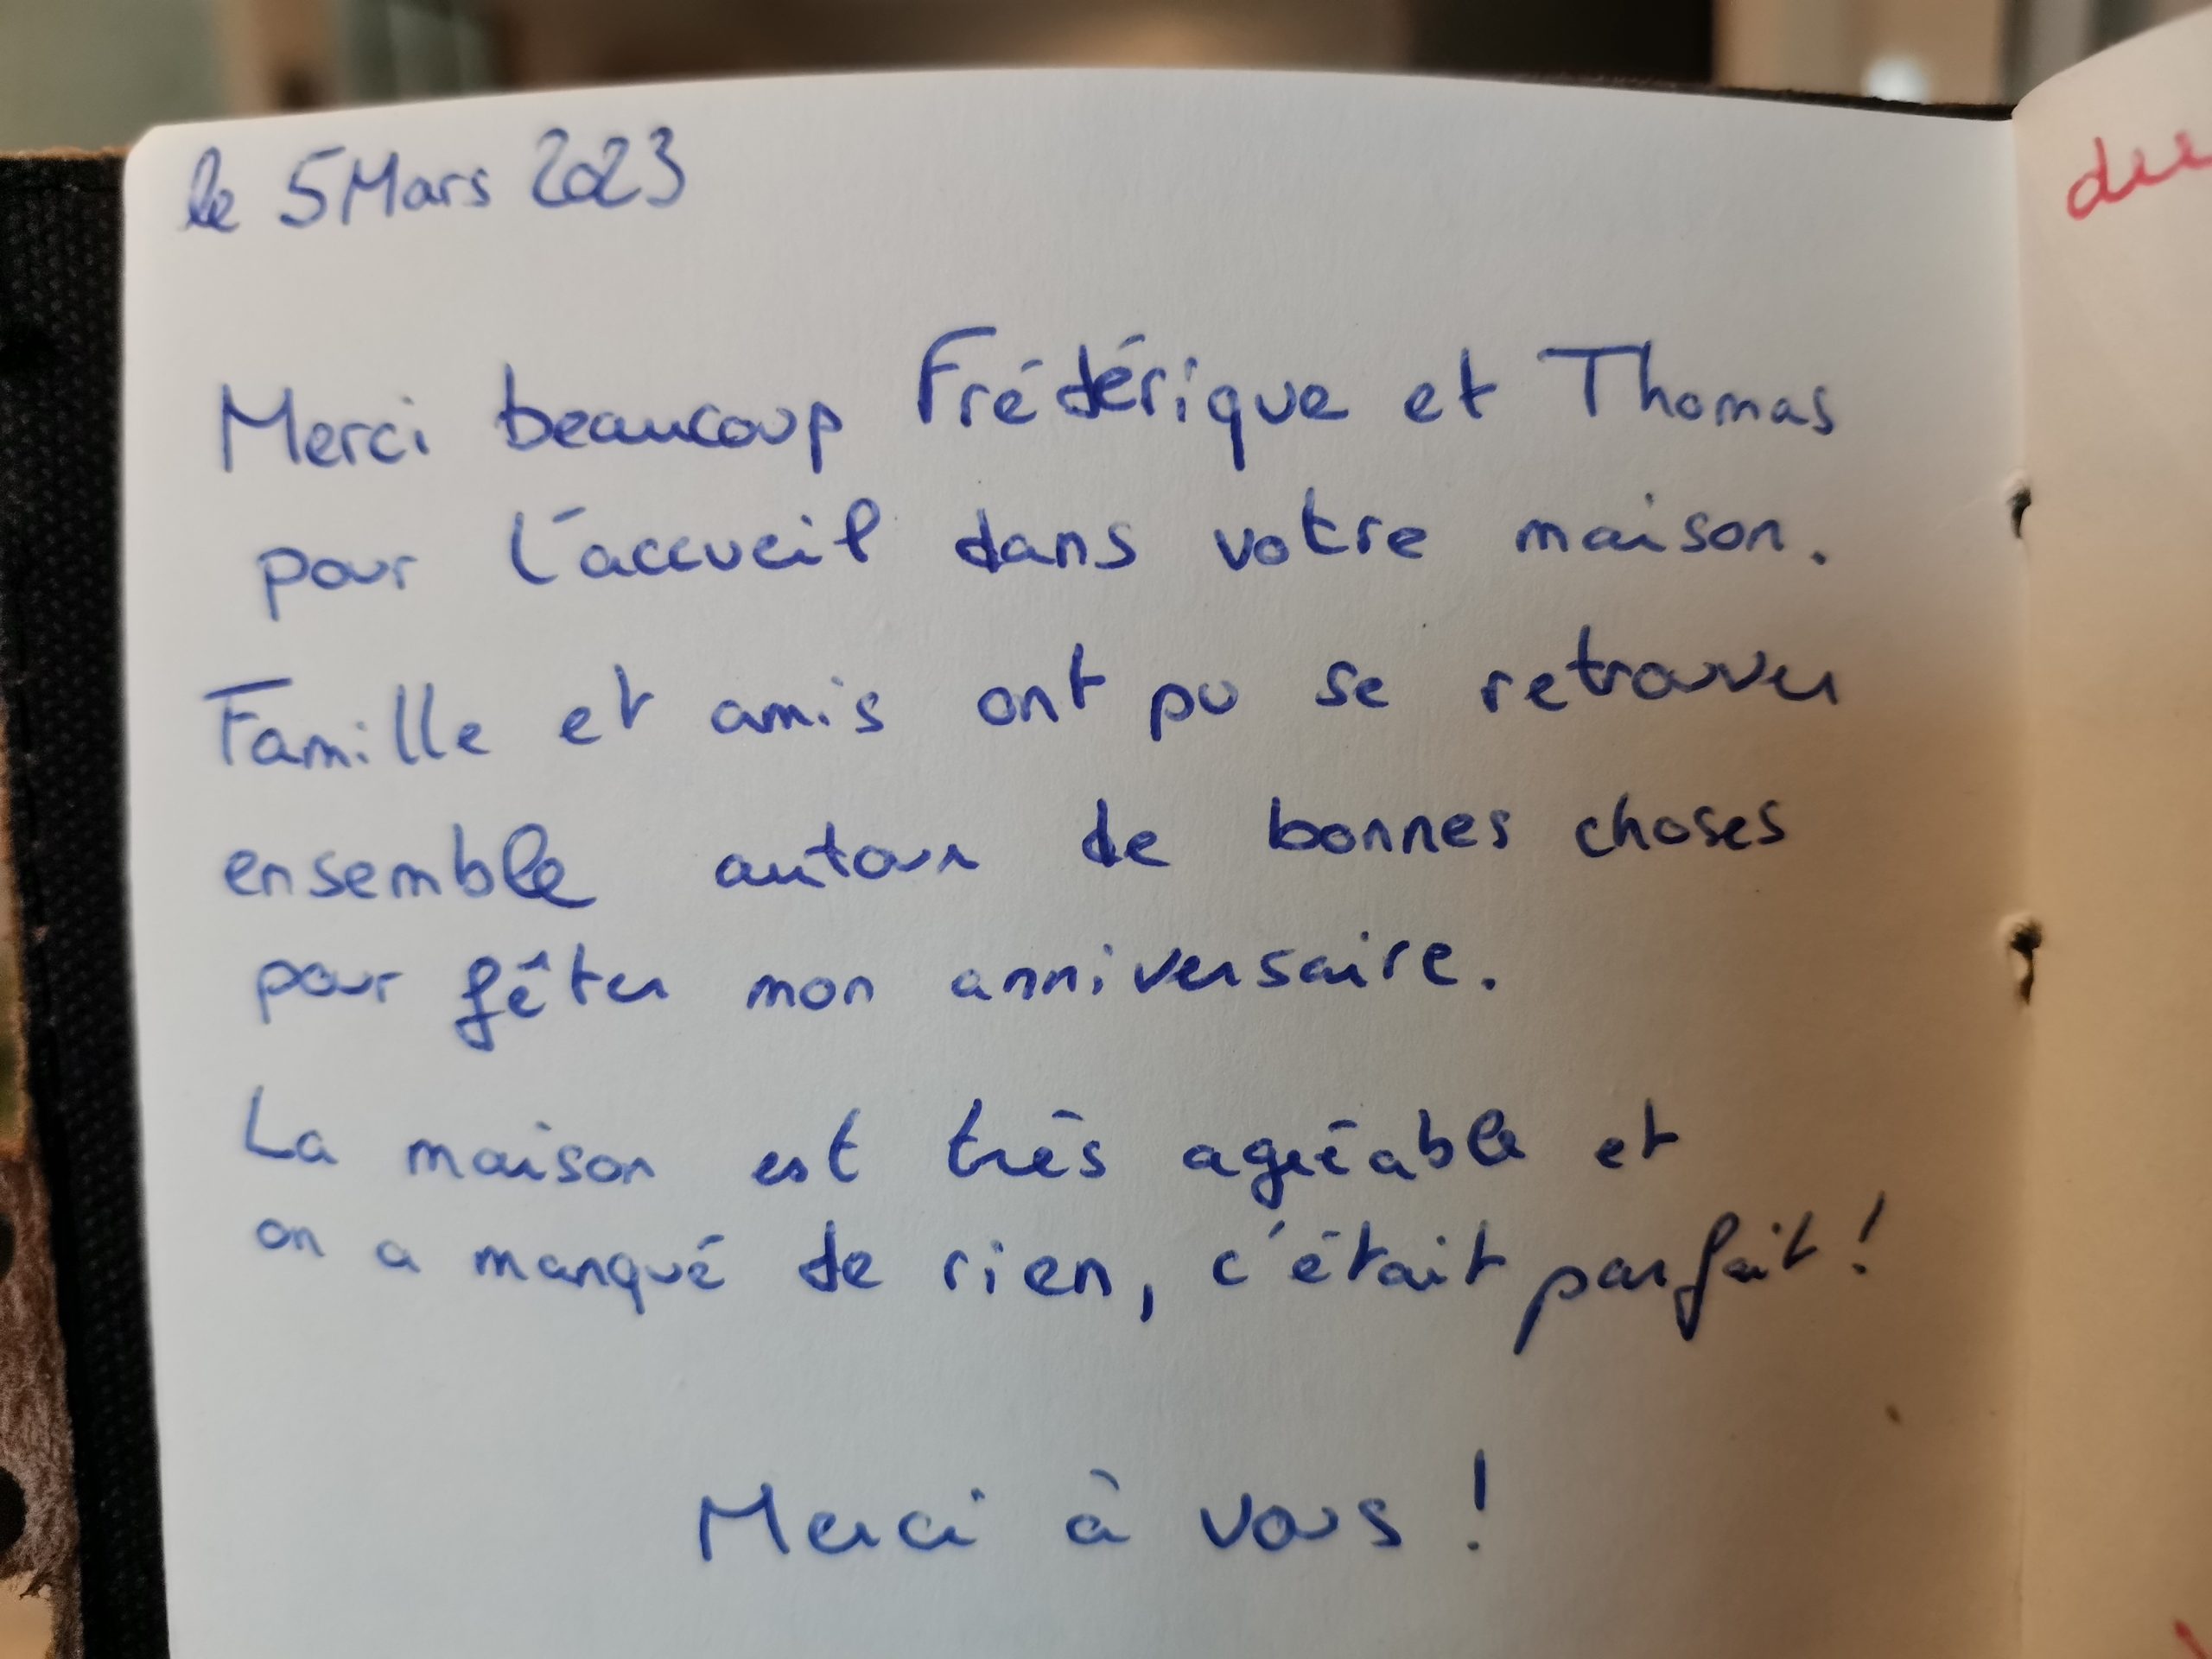 le 5 Mars 2023
Merci beaucoup Frédérique et Thomas
pour l'accueil dans votre maison.
Famille et amis ont pu se retrouver
ensemble autour de bonnes choses
pour fêter mon anniversaire.
La maison est très agréable et
on a manqué de rien, c'était parfait !
Merci à vous !